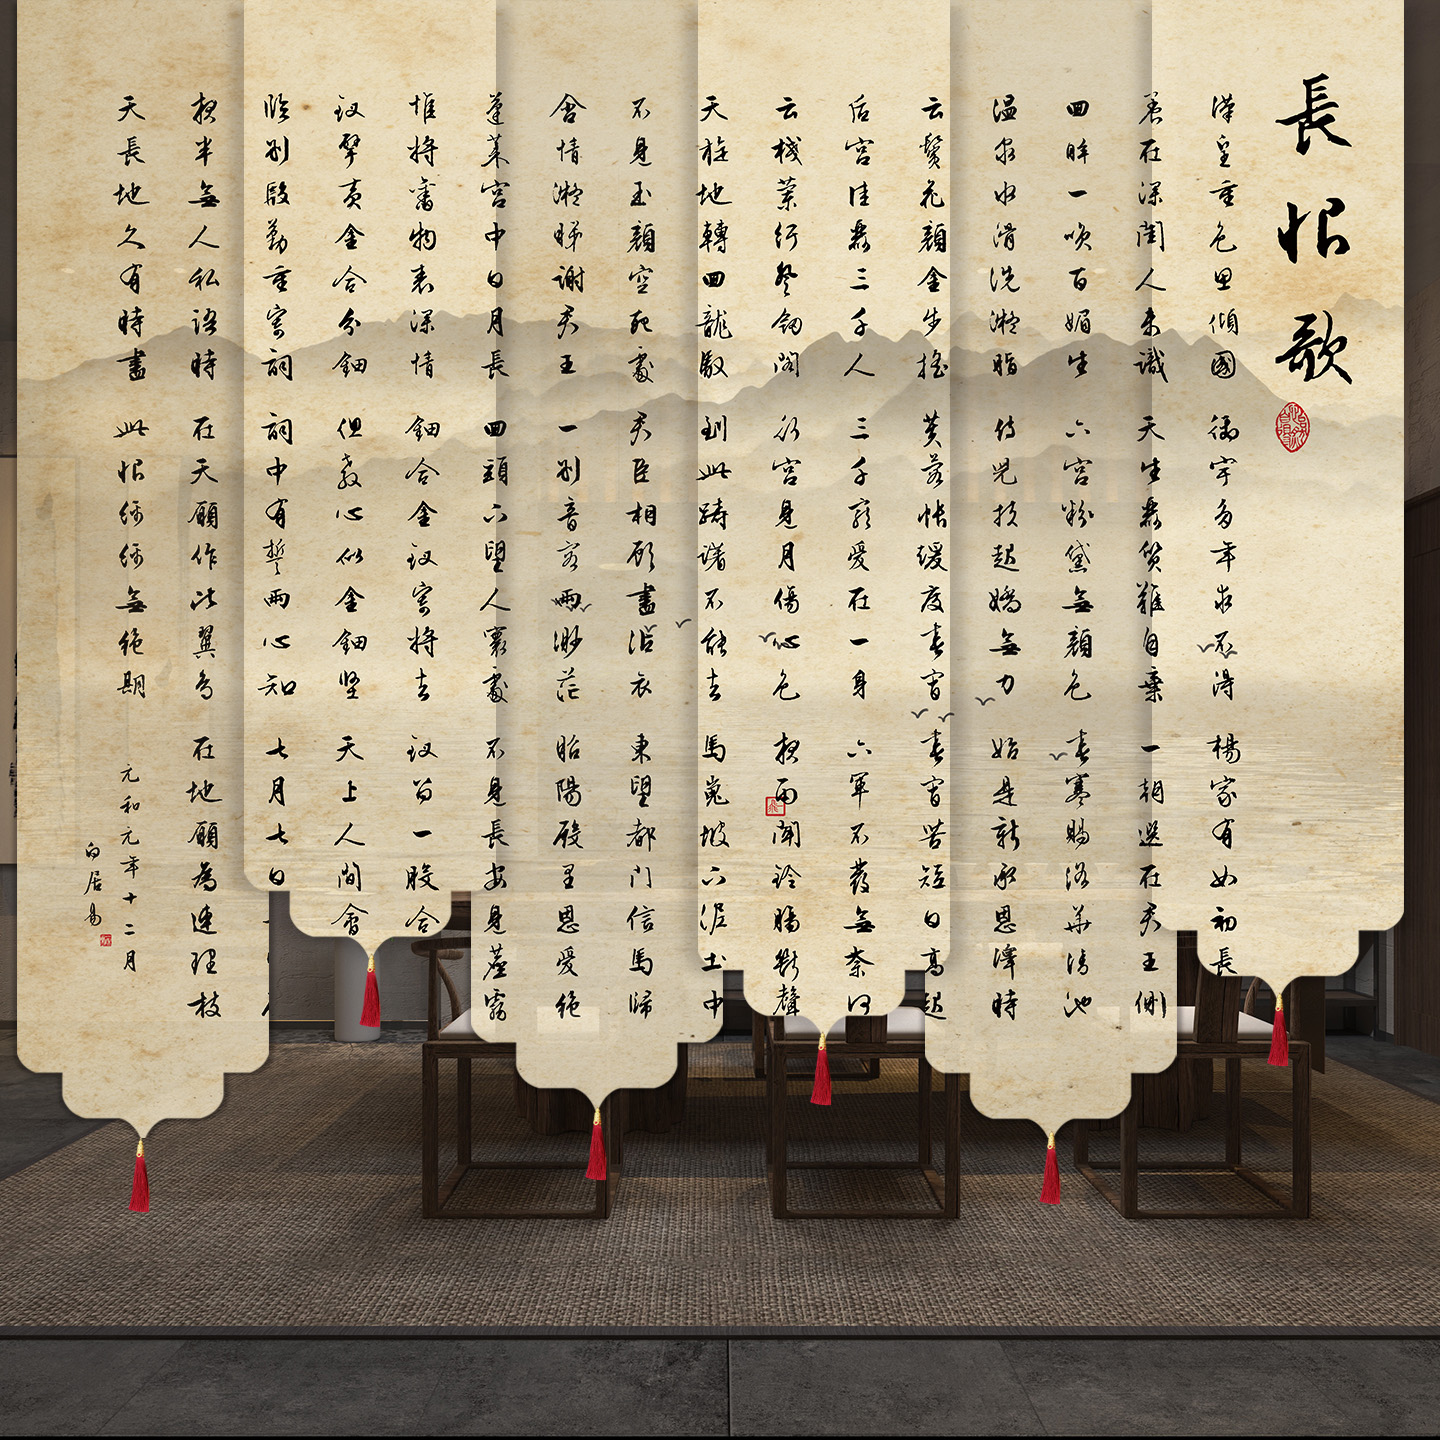 長恨歌
漢皇重色思傾國 御宇多年求不得 楊家有女初長
養在深閨人未識 天生麗質難自棄 一朝選在君王側
回眸一笑百媚生 六宮粉黛無顏色 春寒賜浴華清池
溫泉水滑洗凝脂 侍兒扶起嬌無力 始是新承恩澤時
云鬢花顏金步搖 芙蓉帳暖度春宵 春宵苦短日高起
后宮佳麗三千人 三千寵愛在一身 六軍不發無奈何
云棧縈紆登劍閣 行宮見月傷心色 夜雨聞鈴腸斷聲
天旋地轉回龍馭 到此躊躇不能去 馬嵬坡下泥土中
不見玉顏空死處 君臣相顧盡沾衣 東望都門信馬歸
含情凝睇謝君王 一別音容兩渺茫 昭陽殿里恩愛絕
蓬萊宮中日月長 回頭下望人寰處 不見長安見塵霧
惟將舊物表深情 鈿合金釵寄將去 釵留一股合
釵擘黃金合分鈿 但教心似金鈿堅 天上人間會
臨別殷勤重寄詞 詞中有誓兩心知 七月七日
夜半無人私語時 在天願作比翼鳥 在地願為連理枝
天長地久有時盡 此恨綿綿無絕期
元和元年十二月
白居易